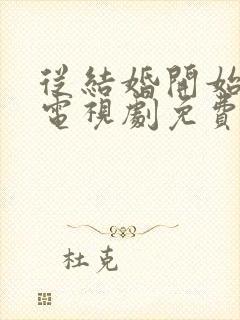 從結婚開始
電視劇免費
杜克